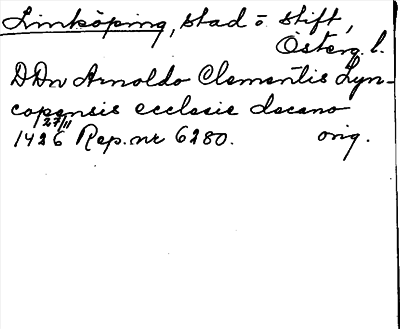 Linköping, stad o stift,
Österg. l.
DDn Arnoldo Clementis Lyn-
copensis ecclesie decano
27/11
1426 Rep. nr 6280. orig.